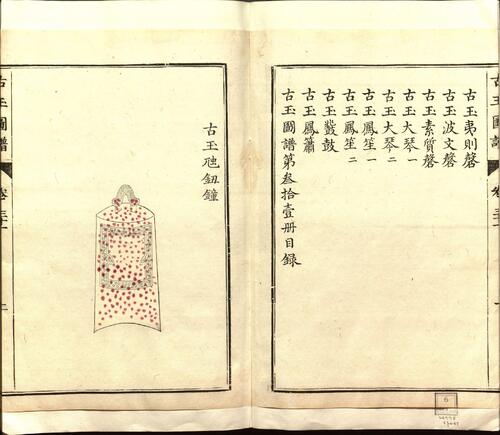 古玉圖譜
卷三十一
古玉夷則磬
古玉波文磬
古玉素質磬
古玉大琴一
古玉大琴二
古玉鳳笙一
古玉鳳笙二
古玉鼗鼓
古玉鳳簫
古玉圖譜第叁拾壹册目録
古玉虺鈕鐘
古玉圖譜
卷三十一
6